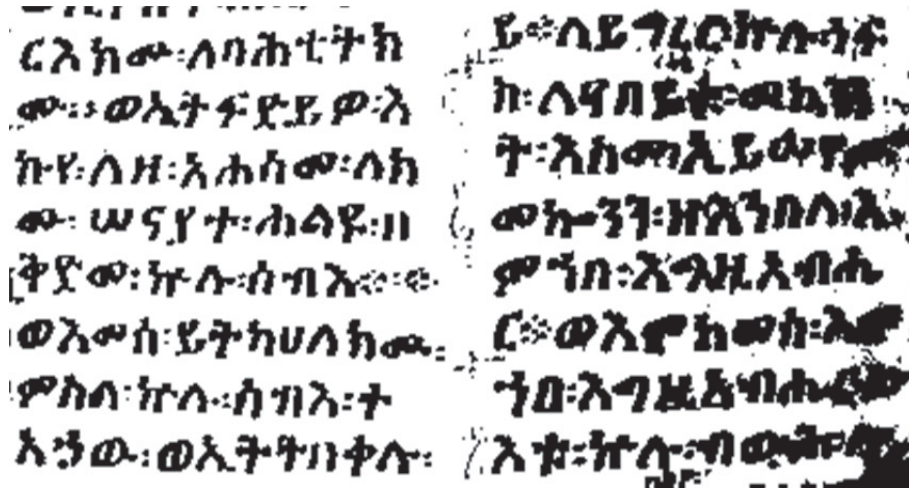 ርእክሙ፡ለባሕቲትክ
ሙ፡፡ወኢትፍድይዎ፡እ
ኩየ፡ለዘ፡አሕሰመ፡ለክ
ሙ፡ሠናየተ፡ሐልዩ፡በ
ቅድመ፡ኵሉ፡ሰብእ፨
ወእመሰ፡ይትከሀለክሙ፡
ምስለ፡ኵሉ፡ሰብእ፡ተ
አኃው፡ወኢትትበቀሉ፡
ይ፨ለይግረር፡ኵሉ፡ነፍ
ት፡እስመ
መኰንን፡ዘእንበለ፡እ
ምኀበ፡እግዚአብሔ
ር፨ወእምከመሰ፡እም
ኀበ፡እግዚአብሔር
እቱ፡ኵሉ፡